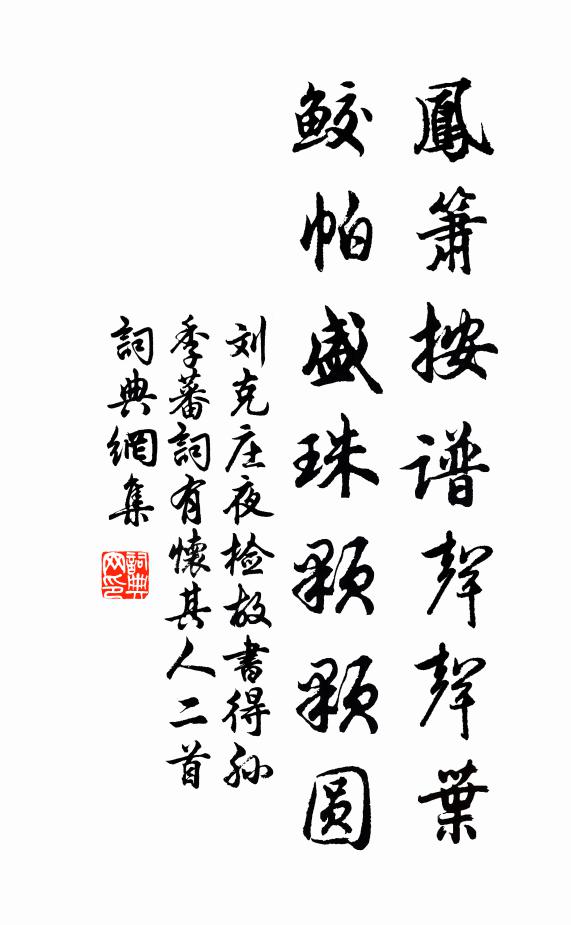 鳳簫按谱聲聲葉
鲛帕盛珠顆顆圆
刘克庄夜检故書得孙
季蕃詞有懷其人二首
詞典網集
詞典网印